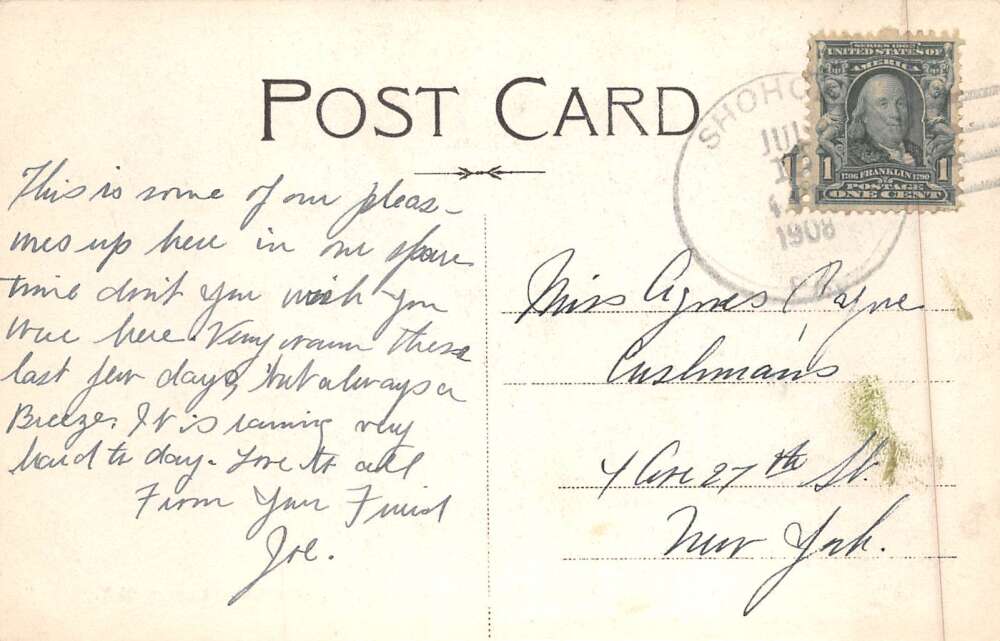 POST CARD
SERIES 1902
UNITED STATES OF
AMERICA
1 1
1706 FRANKLIN 1790
POSTAGE
ONE CENT
SHOHO
JUL
1908
This is some of our pleas-
ures up here in our spare
time don't you wish you
were here. Very warm these
last few days, but always a
Breeze. It is raining very
hard to day. Love to all
From Your Friend
Joe.
Miss Agnes Payne
Cushman's
4 Ave 27th St.
New York.